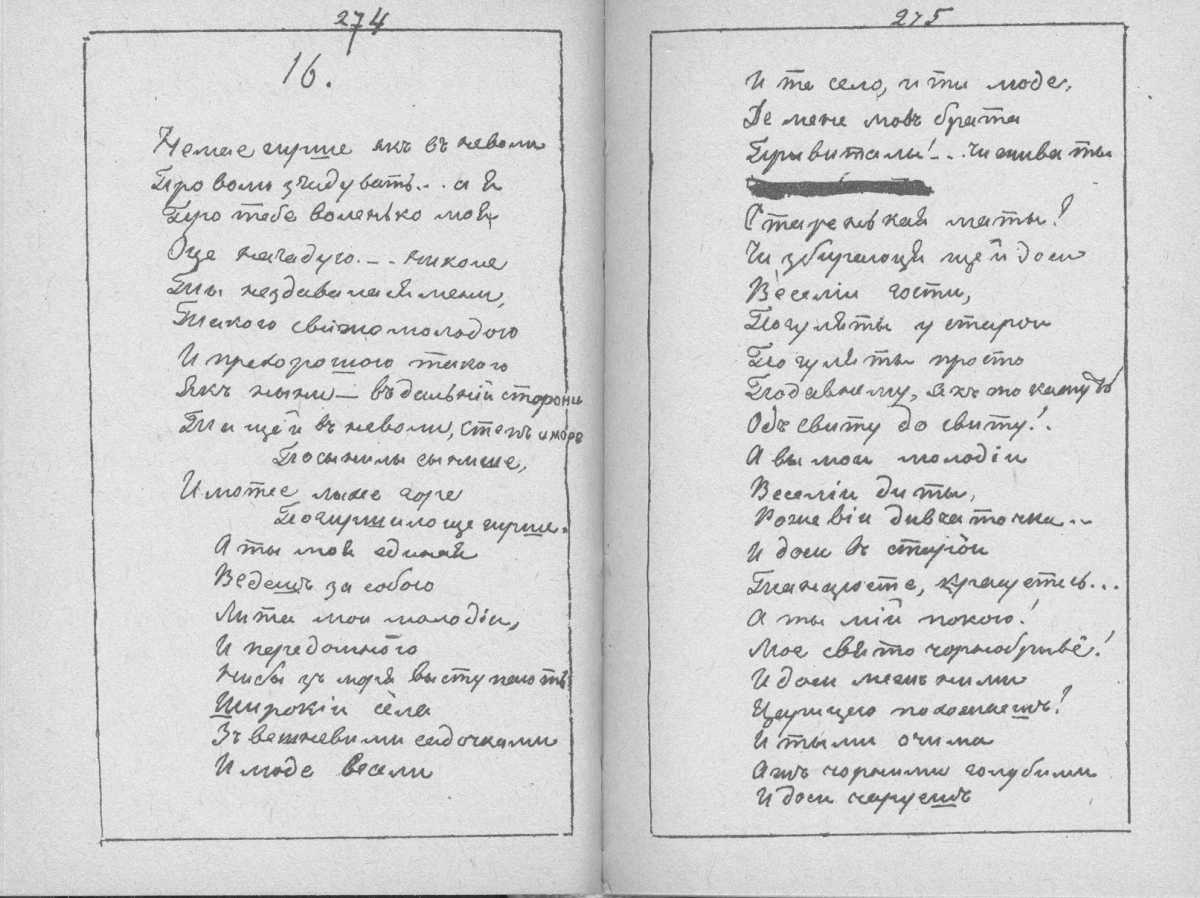 274
16.
Немае гирше якъ въ неволи
Про волю згадувать... а я
Про тебе воленько моя
Оце нагадую... николи
Ты нездавалася мени,
Такого свижомолодою
И прехорошою такою
Якъ ныни — въ дальній сторони
Та щей въ неволи, степъ и море
Посынилы
И може лыхе горе
Погиршило ще гирше.
А ты моя единая
Ведешъ за собою
Лита мои молодіи,
И передомною
Ниби зъ моря выступають
Широкіи села
Зъ вешневими садочками
И люде весели
275
И те село, и ти люде,
Де мене мовъ брата
Привиталы!... чи жива ты
Старенькая маты?
Чи збираюця щей доси
Веселіи гости,
Погуляты у старои
Погуляты просто
Подавнему, якъ то кажуть
Одъ свиту до свиту!.
А вы мои молодіи
Веселіи диты,
Рожевіи дивчаточка..
И доси въ старіои
Танцюете, кращетись...
А ты мій покою!
Мое свято чорнобриве!
И доси межъ ними
Царицею похожаешъ!
И тыми очима
Ажъ чорними голубими
И доси чаруешъ